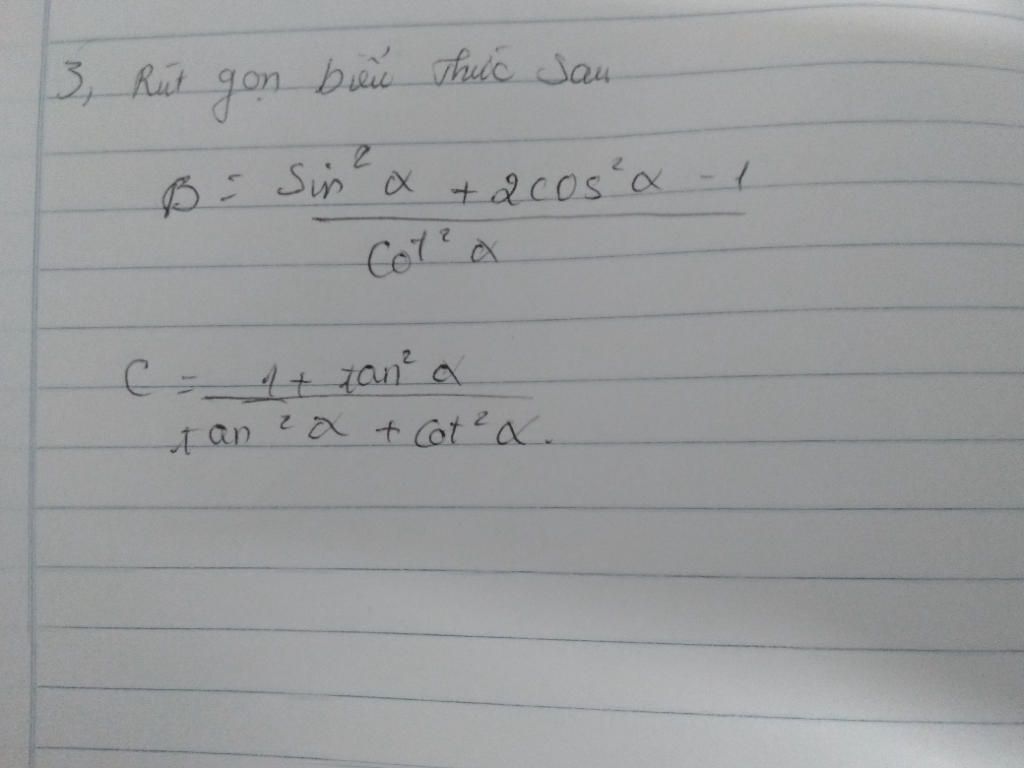 3, Rút gọn biểu thức sau
B = sin² α + 2cos²α - 1
cot² α
C = 1 + tan² α
tan ² α + cot² α.